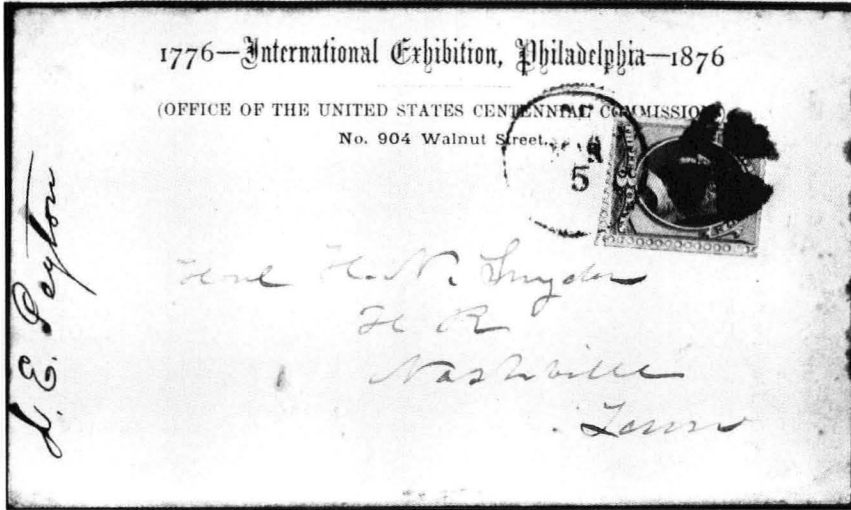 1776—International Exhibition, Philadelphia—1876
(OFFICE OF THE UNITED STATES CENTENNIAL COMMISSION)
No. 904 Walnut Street.
5
J. E. Peyton
H. N. Snyder
H R
Nashville
Tenn